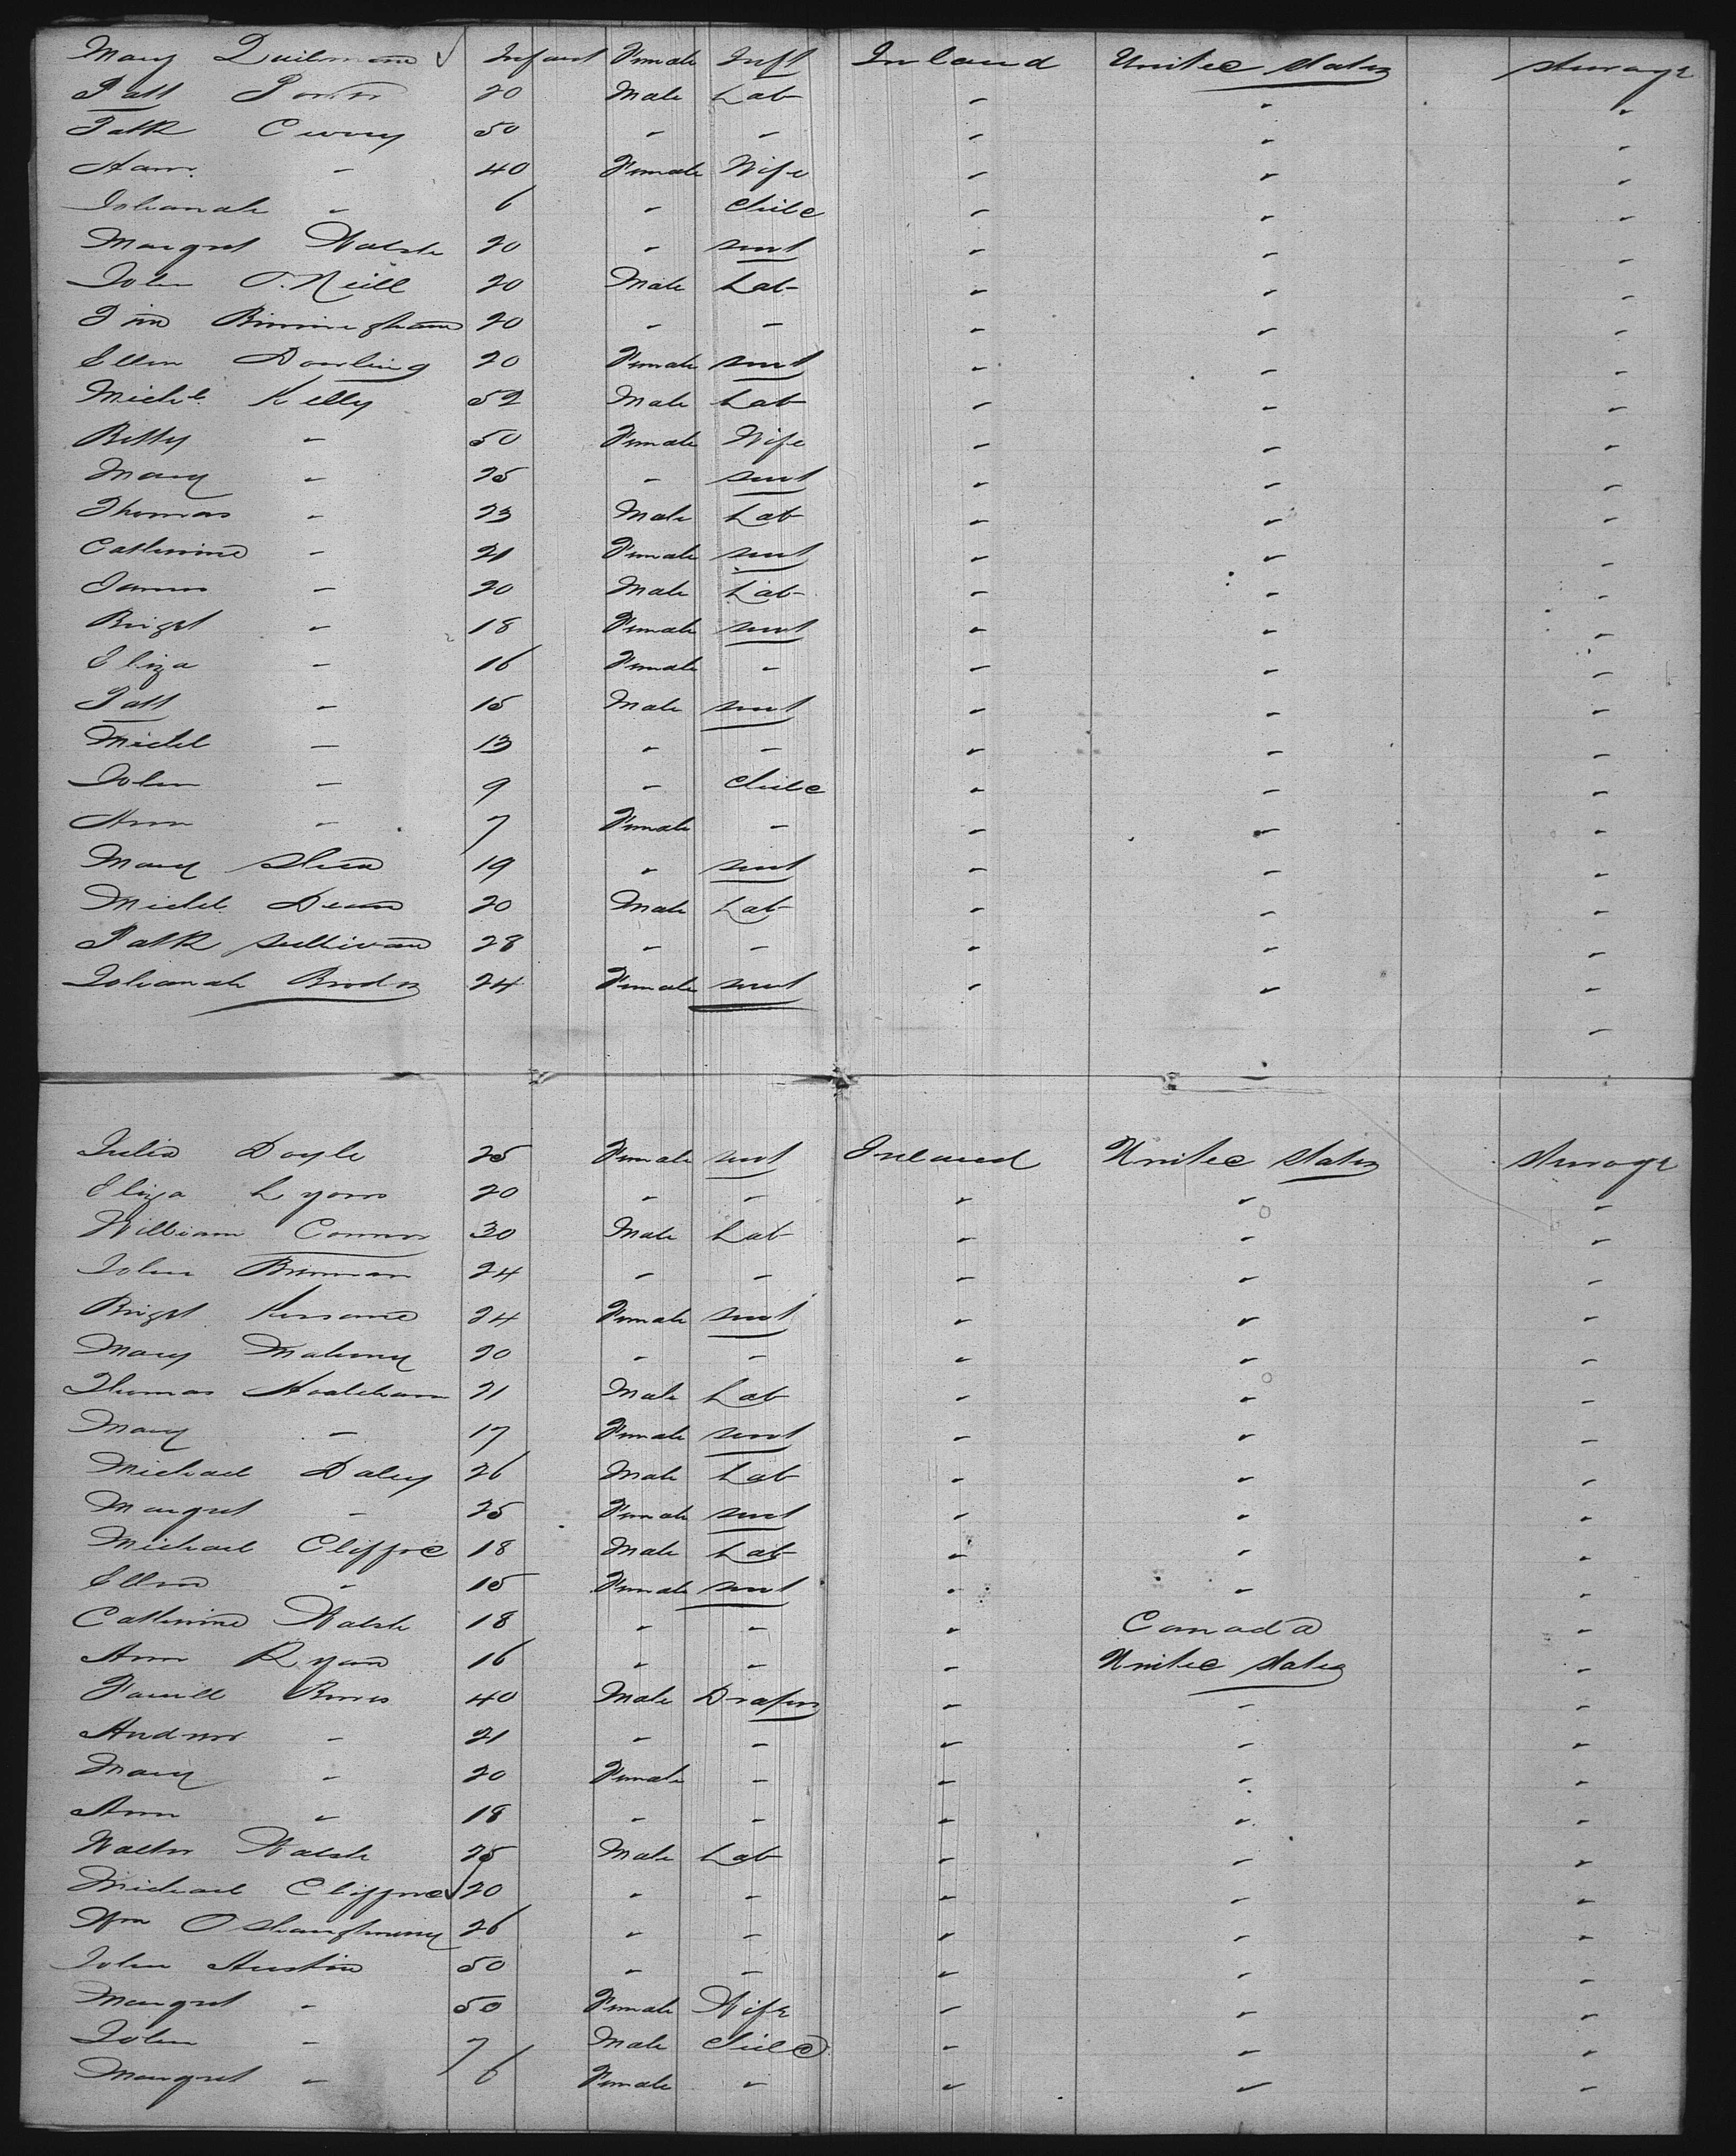 Mary Quilman Infant Female Inft Ireland United States Steerage
Patt Power 20 Male Lab " " "
Patk Curry 50 " " " " "
Hanr. " 40 Female Wife " " "
Johanah " 6 " Child " " "
Margret Walsh 20 " Servt " " "
John O'Neill 20 Male Lab " " "
Jim Birmingham 20 " " " " "
Ellen Dowling 20 Female Servt " " "
Michl. Kelly 52 Male Lab " " "
Betty " 50 Female Wife " " "
Mary " 25 " Servt " " "
Thomas " 23 Male Lab " " "
Catherine " 21 Female Servt " " "
James " 20 Male Lab " " "
Briget " 18 Female Servt " " "
Eliza " 16 Female " " " "
Patt " 15 Male Servt " " "
Michl " 13 " " " " "
John " 9 " Child " " "
Ann " 7 Female " " " "
Mary Shea 19 " Servt " " "
Michl. Dean 20 Male Lab " " "
Patk Sullivan 28 " " " " "
Johanah Broder 24 Female Servt " " "
Julia Doyle 25 Female Servt Ireland United States Steerage
Eliza Lyons 20 " " " " "
William Connor 30 Male Lab " " "
John Brennan 24 " " " " "
Briget Kissane 24 Female Servt " " "
Mary Mahony 20 " " " " "
Thomas Houlihan 21 Male Lab " " "
Mary " 17 Female Servt " " "
Michael Daley 26 Male Lab " " "
Margret " 25 Female Servt " " "
Michael Cliffod 18 Male Lab " " "
Ellen " 15 Female Servt " " "
Catherine Walsh 18 " " " Canada "
Ann Ryan 16 " " " United States "
Farrell Burns 40 Male Draper " " "
Andrew " 21 " " " " "
Mary " 20 Female " " " "
Ann " 18 " " " " "
Walter Walsh 25 Male Lab " " "
Michael Cliffod 20 " " " " "
Wm O Shaughnessy 26 " " " " "
John Austin 50 " " " " "
Margret " 50 Female Wife " " "
John " 7 Male Child " " "
Margret " 6 Female " " " "